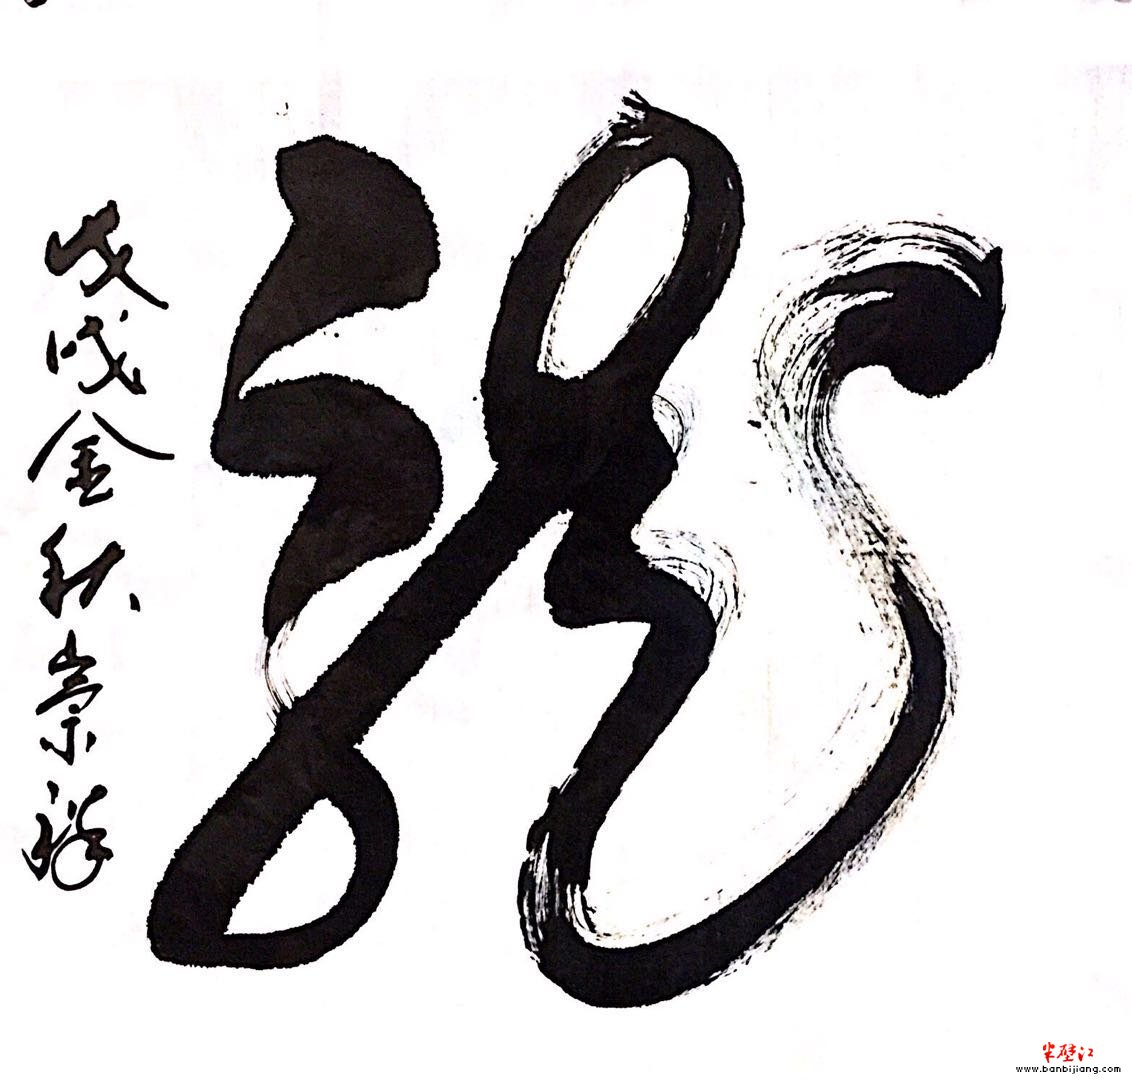 龍
戊戌金秋崇祥
半壁江
www.banbijiang.com